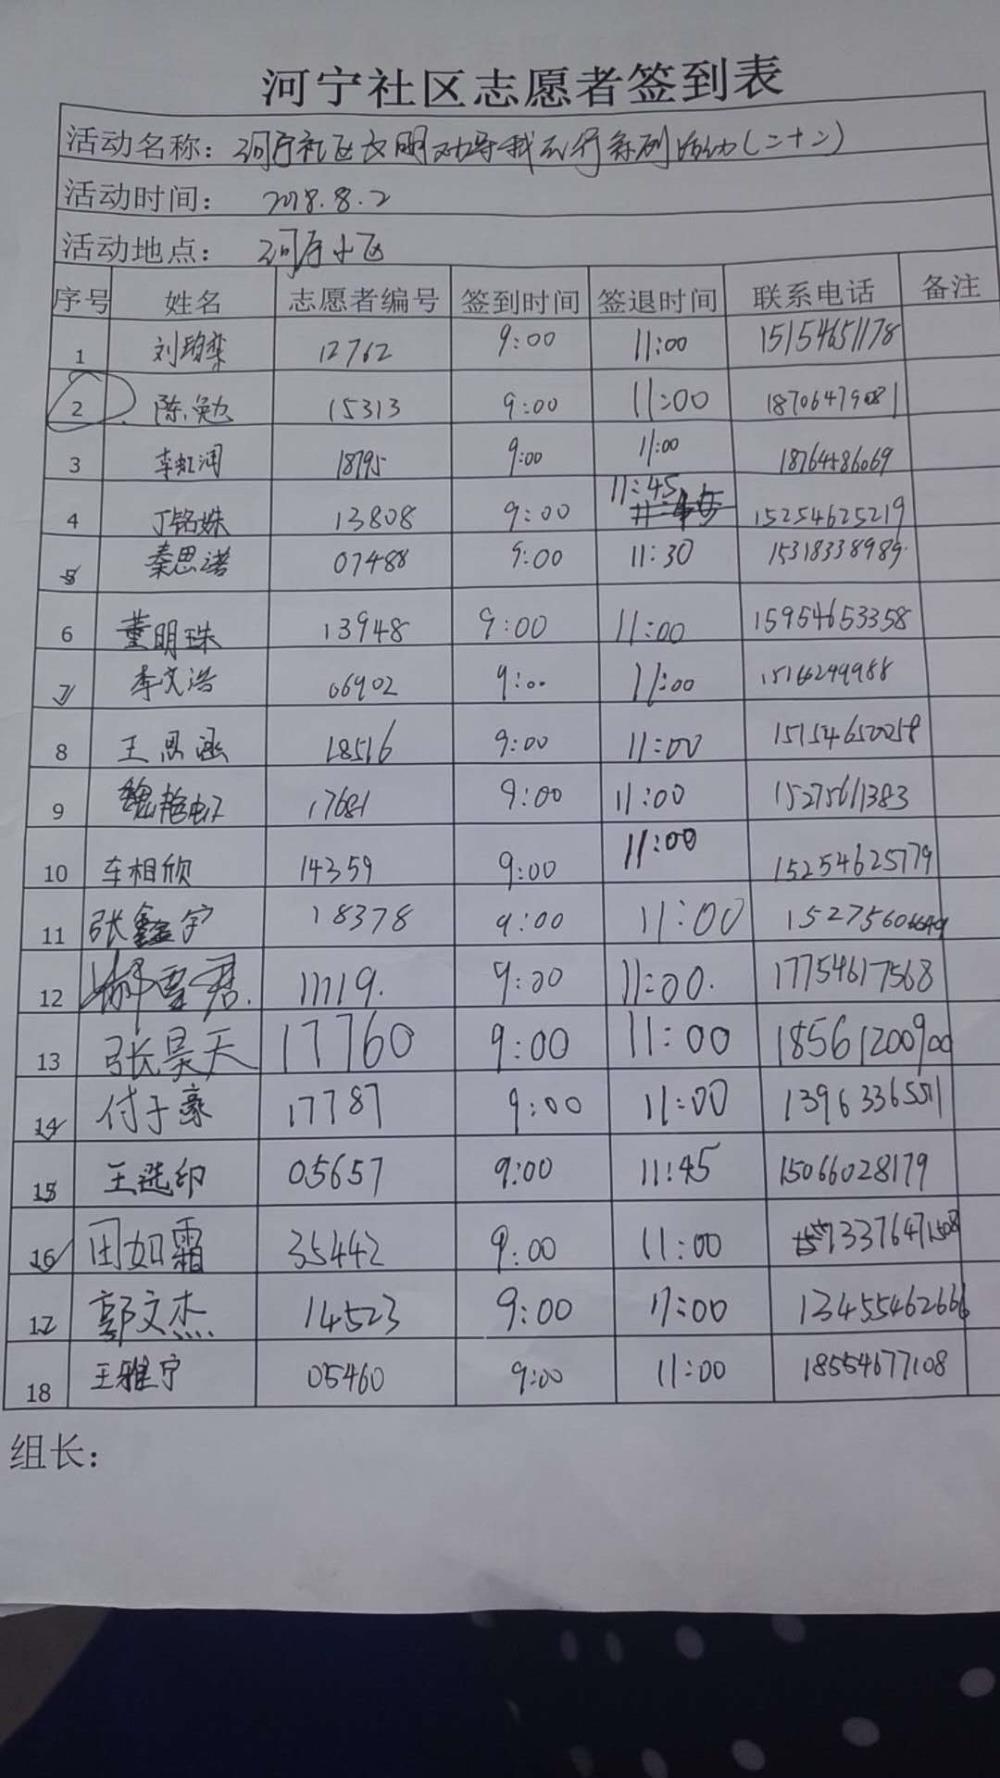 河宁社区志愿者签到表
活动名称：河宁社区文明劝导我先行系列活动(二十二)
活动时间： 2018.8.2
活动地点： 河宁小区
序号 姓名 志愿者编号 签到时间 签退时间 联系电话 备注
1 刘 12762 9:00 11:00 15154651178
2 陈勉 15313 9:00 11:00 18706479081
3 李虹润 18795 9:00 11:00 18764586069
4 丁铭姝 13808 9:00 11:45 15254625219
5 秦思诺 07488 9:00 11:30 15318338989
6 董明珠 13948 9:00 11:00 15954653358
7 李文浩 06902 9:00 11:00 15166249988
8 王思涵 18516 9:00 11:00
9 魏 17681 9:00 11:00 15275611383
10 车相欣 14359 9:00 11:00 15254625779
11 张鑫宇 18378 9:00 11:00
12 11119. 9:00 11:00. 17754617568
13 张昊天 17760 9:00 11:00 18561200900
14 付子豪 17787 9:00 11:00 13963365511
15 王选印 05657 9:00 11:45 15066028179
16 田如霜 35442 9:00 11:00 13376471508
17 郭文杰 14523 9:00 11:00 13455462666
18 王雅宁 05460 9:00 11:00 18554677108
组长：